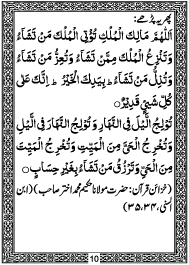 پھر یہ پڑھے:
اَللّٰهُمَّ مَالِكَ الْمُلْكِ تُؤْتِی الْمُلْكَ مَنْ تَشَآءُ
وَتَنْزِعُ الْمُلْكَ مِمَّنْ تَشَآءُ وَتُعِزُّ مَنْ تَشَآءُ
وَتُذِلُّ مَنْ تَشَآءُ ؕ بِیَدِكَ الْخَیْرُ ؕ اِنَّكَ عَلٰی
كُلِّ شَیْءٍ قَدِیْرٌ ○
تُوْلِجُ الَّیْلَ فِی النَّهَارِ وَتُوْلِجُ النَّهَارَ فِی الَّیْلِ
وَتُخْرِجُ الْحَیَّ مِنَ الْمَیِّتِ وَتُخْرِجُ الْمَیِّتَ
مِنَ الْحَیِّ وَتَرْزُقُ مَنْ تَشَآءُ بِغَیْرِ حِسَابٍ ○
(خزائن قرآن: حضرت مولانا حکیم محمد اختر صاحب) (ابن
السنی، ۳۴، ۳۵)
10